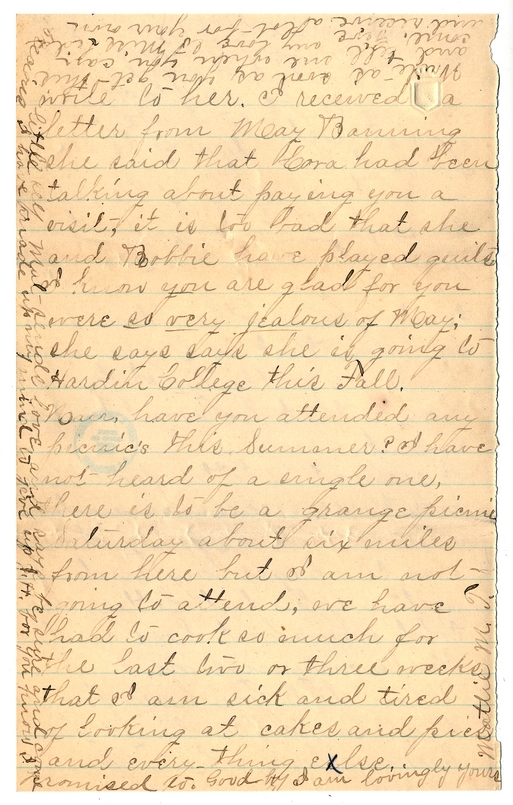 write to her. I received a
letter from May Banning
she said that Nora had been
talking about paying you a
visit, it is too bad that she
and Bobbie have played quits
I know you are glad for you
were so very jealous of May;
she says says she is going to
Hardin College this Fall.
have you attended any
picnic's this Summer? I have
not heard of a single one,
there is to be a grange picnic
Saturday about six miles
from here but I am not
going to attend, we have
had to cook so much for
the last two or three weeks
that I am sick and tired
of looking at cakes and pies
and every-thing else.
promised to. Good by I am lovingly yours
Mattie
sends love and says be sure and come
I have made up my mind to for you know I
Write as soon as you get this
and tell me when you can
come, give my love to
and receive a lot for your own